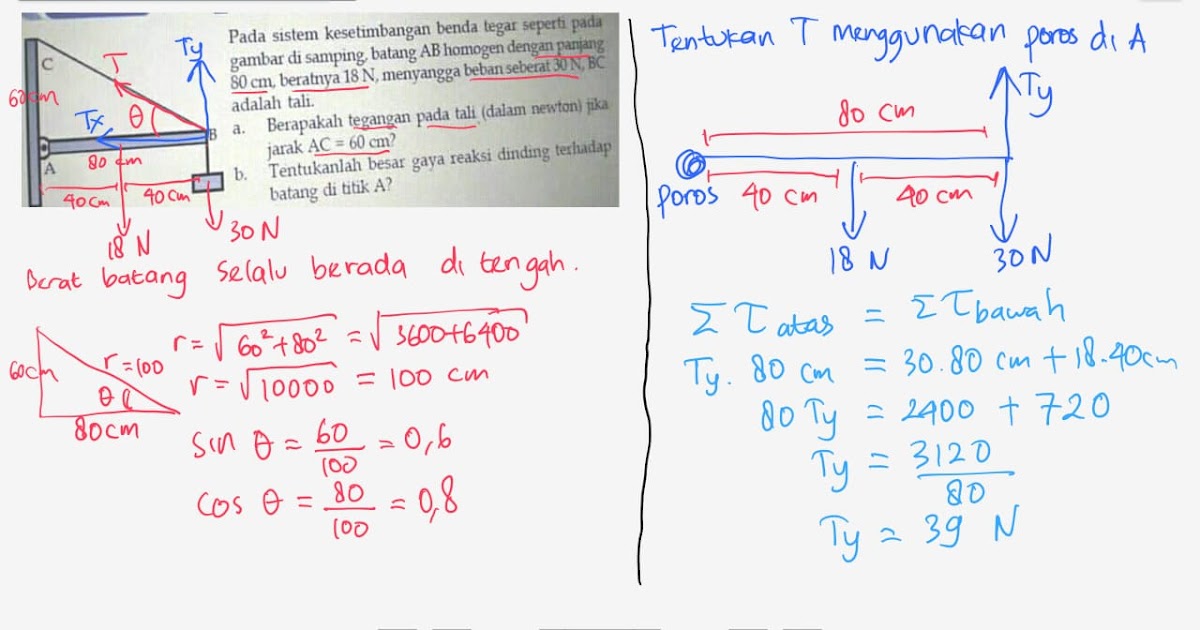 Pada sistem kesetimbangan benda tegar seperti pada
gambar di samping, batang AB homogen dengan panjang
80 cm, beratnya 18 N, menyangga beban seberat 30 N, BC
adalah tali.
a. Berapakah tegangan pada tali (dalam newton) jika
jarak AC = 60 cm?
b. Tentukanlah besar gaya reaksi dinding terhadap
batang di titik A?
C
T
Ty
60 cm
Tx
θ
B
A
80 cm
40 cm
40 cm
18 N
30 N
Berat batang selalu berada di tengah.
60cm
r=100
θ
80cm
r = √60²+80² = √3600+6400
r = √10000 = 100 cm
sin θ = 60/100 = 0,6
cos θ = 80/100 = 0,8
Tentukan T menggunakan poros di A
Ty
80 cm
poros
40 cm
40 cm
18 N
30 N
Στatas = Στbawah
Ty. 80 cm = 30.80 cm + 18.40cm
80 Ty = 2400 + 720
Ty = 3120/80
Ty = 39 N